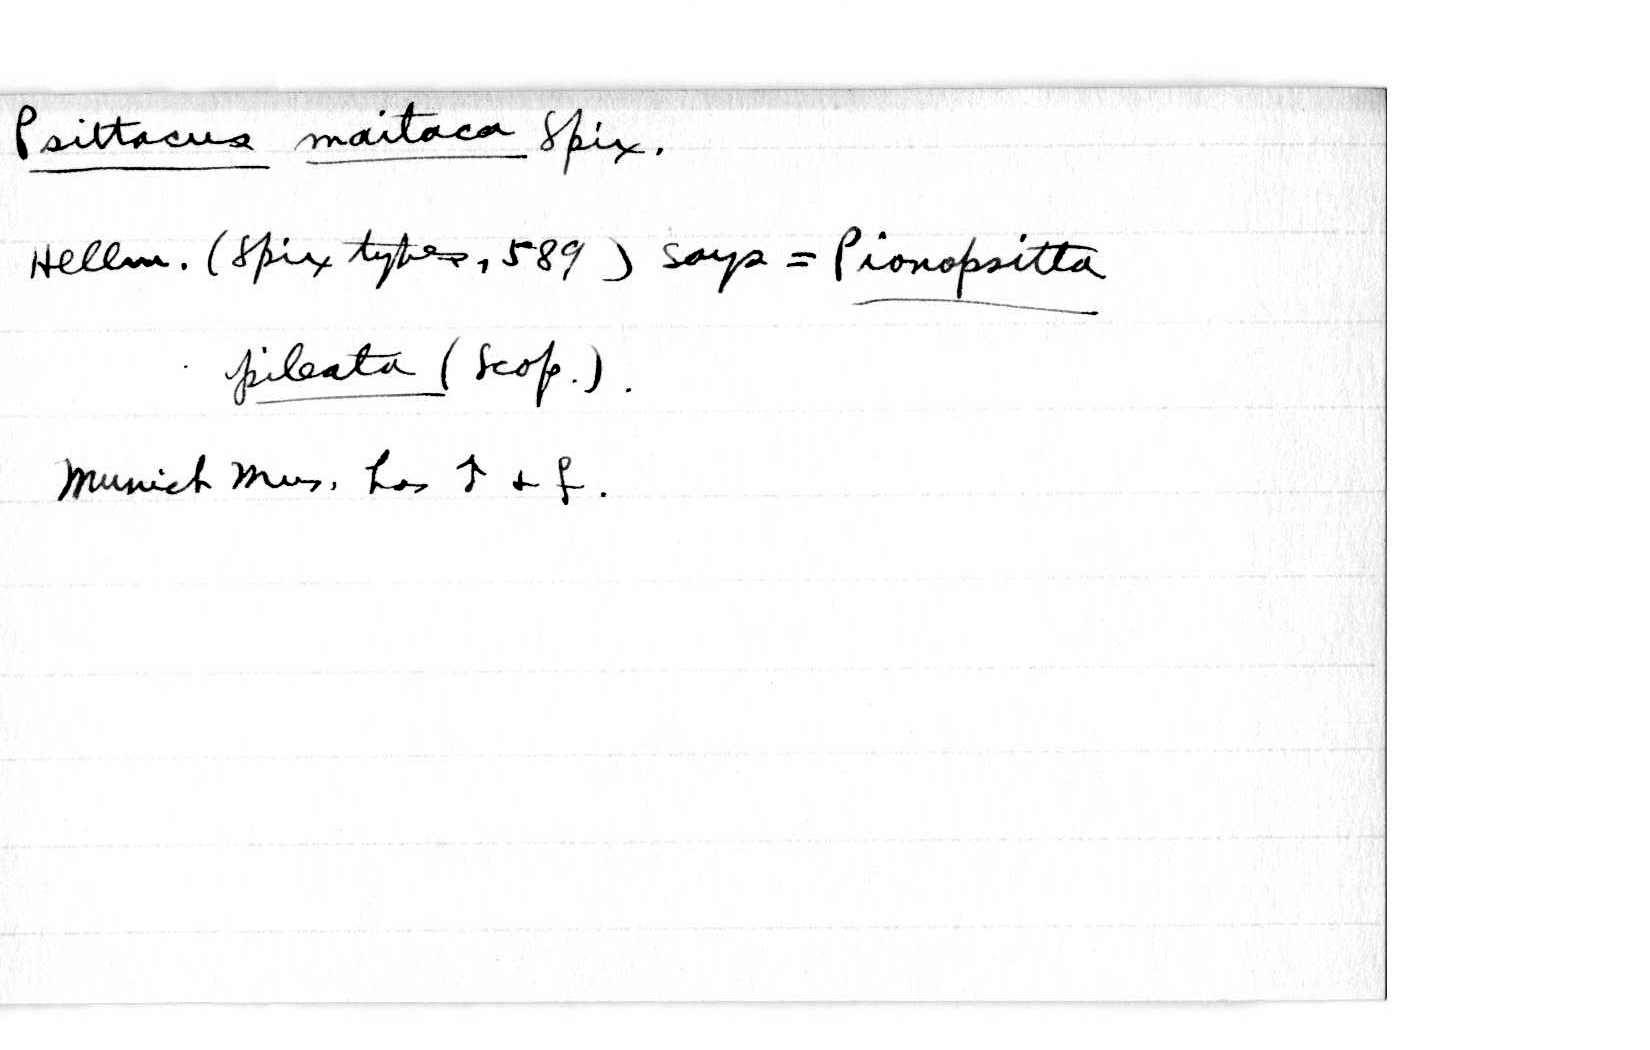 Psittacus maitaca Spix.
Hellm. (Spix types, 589) says = Pionopsitta
pileata (Scop.).
Munich Mus. has ♂ + ♀.